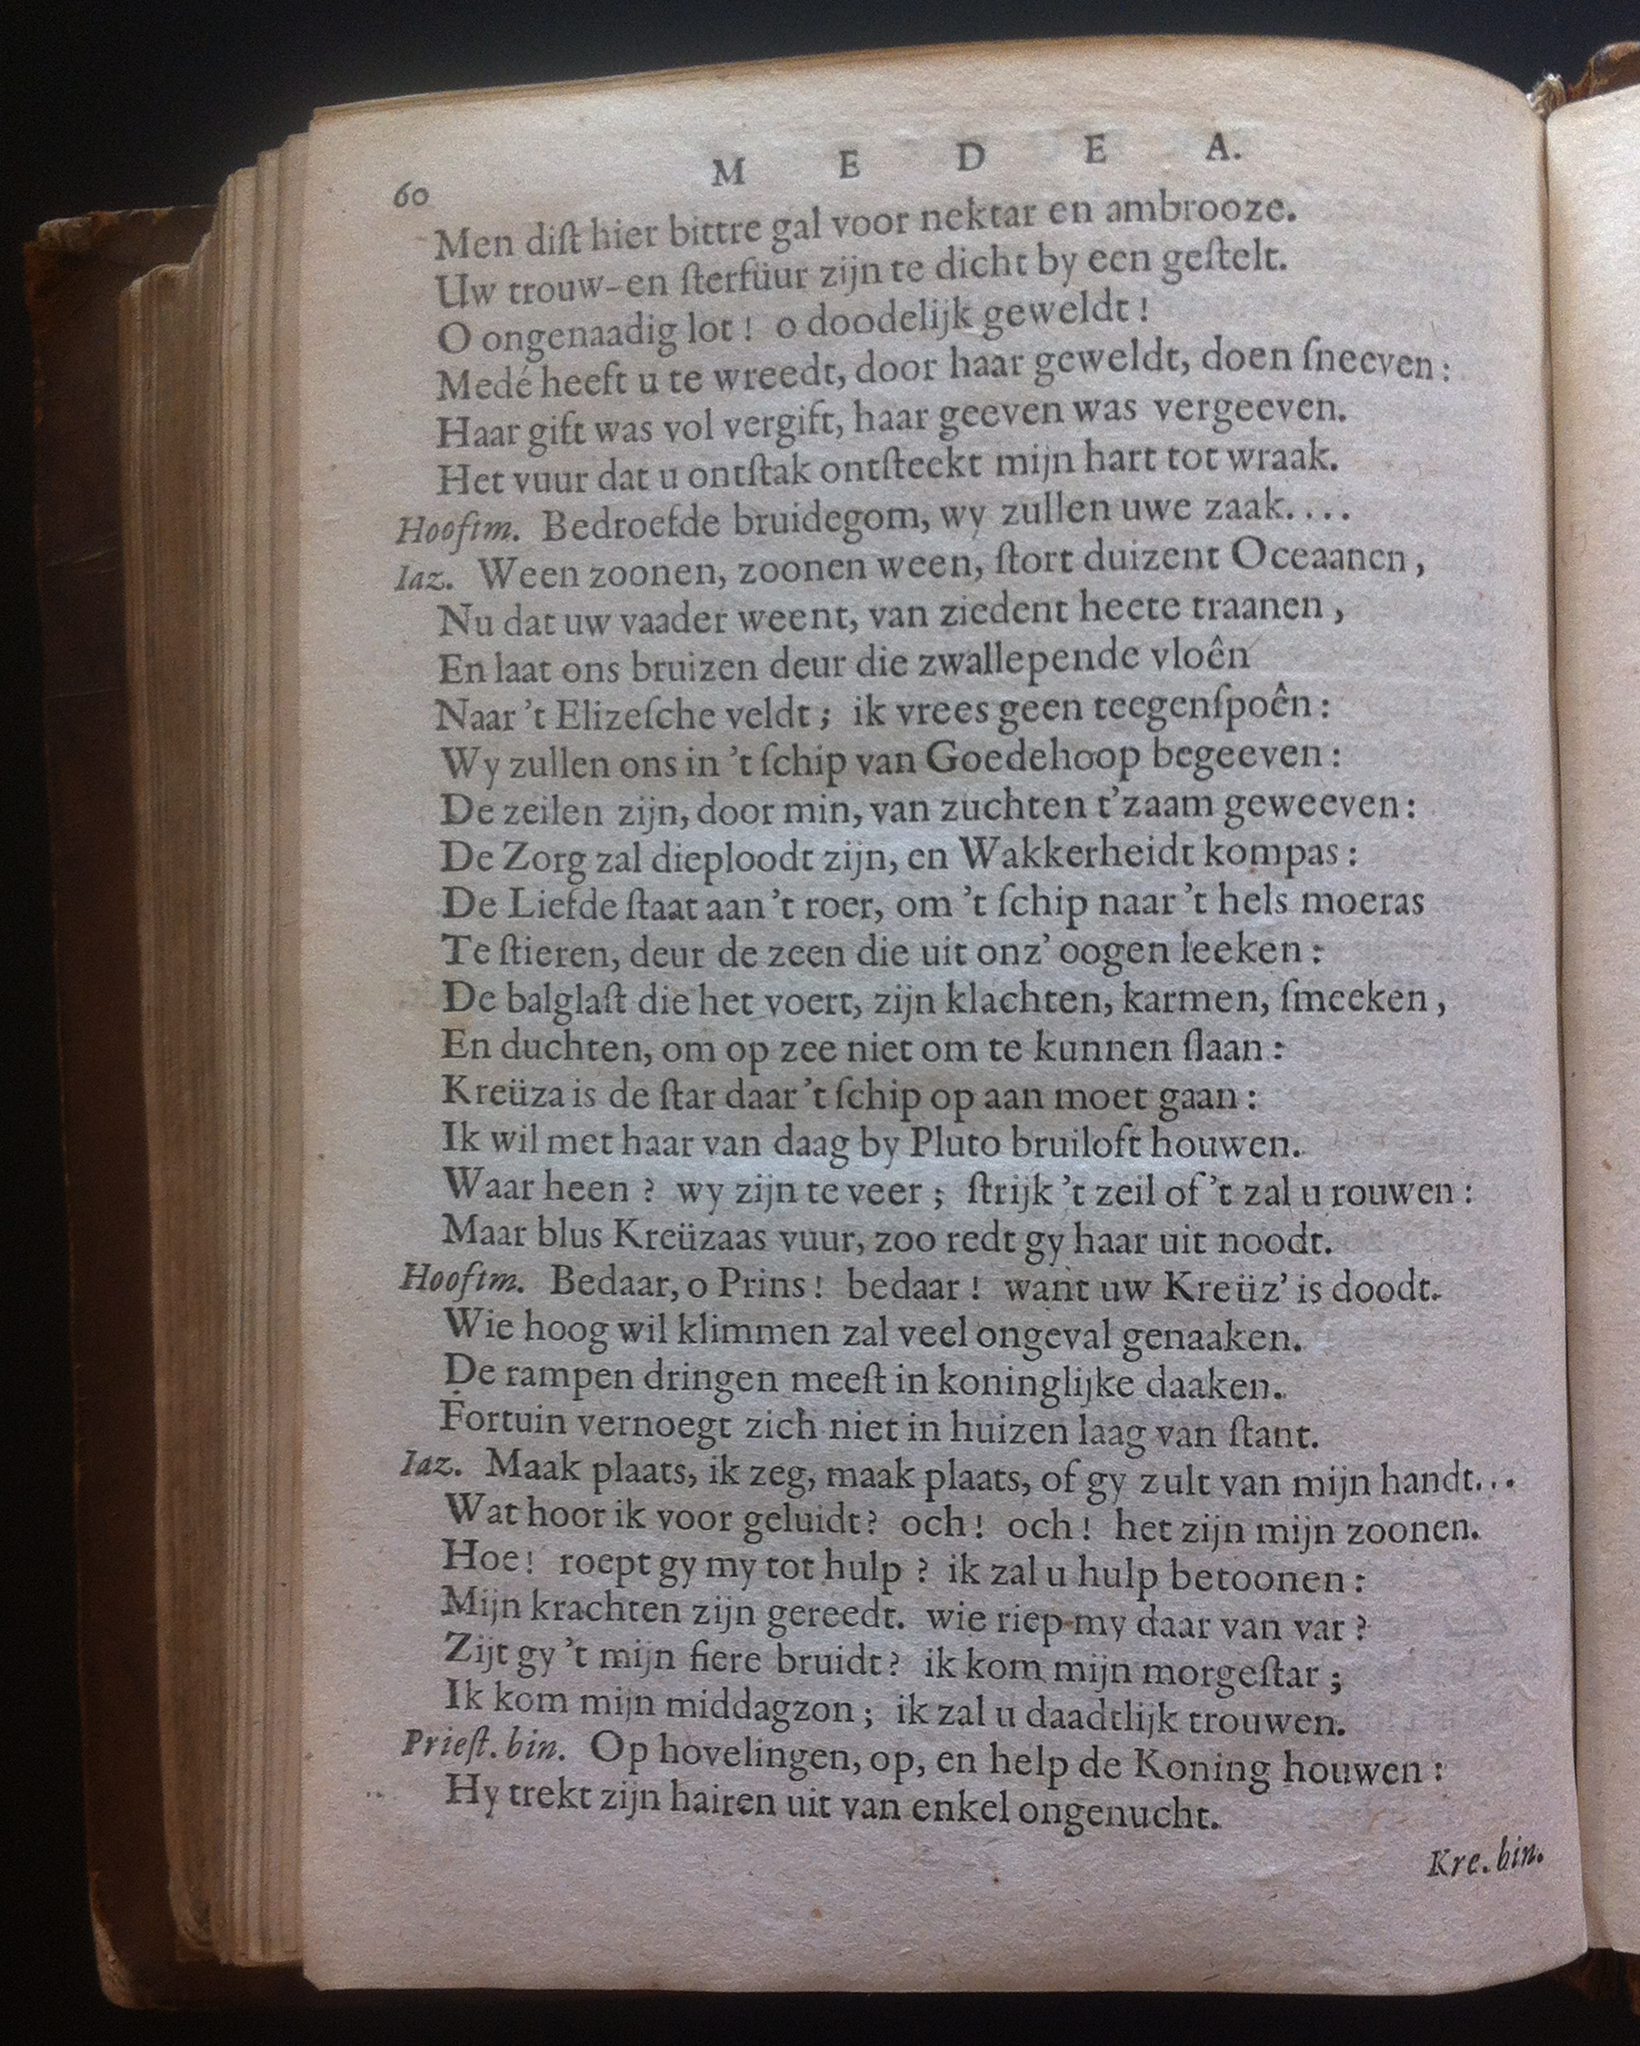 60 M E D E A.
Men diſt hier bittre gal voor nektar en ambrooze.
Uw trouw-en ſterfüur zijn te dicht by een geſtelt.
O ongenaadig lot! o doodelijk geweldt!
Medé heeft u te wreedt, door haar geweldt, doen ſneeven:
Haar gift was vol vergift, haar geeven was vergeeven.
Het vuur dat u ontſtak ontſteekt mijn hart tot wraak.
Hooftm. Bedroefde bruidegom, wy zullen uwe zaak....
Iaz. Ween zoonen, zoonen ween, ſtort duizent Oceaanen,
Nu dat uw vaader weent, van ziedent heete traanen,
En laat ons bruizen deur die zwallepende vloên
Naar 't Elizeſche veldt; ik vrees geen teegenſpoên:
Wy zullen ons in 't ſchip van Goedehoop begeeven:
De zeilen zijn, door min, van zuchten t'zaam geweeven:
De Zorg zal dieploodt zijn, en Wakkerheidt kompas:
De Liefde ſtaat aan 't roer, om 't ſchip naar 't hels moeras
Te ſtieren, deur de zeen die uit onz' oogen leeken:
De balglaſt die het voert, zijn klachten, karmen, ſmeeken,
En duchten, om op zee niet om te kunnen ſlaan:
Kreüza is de ſtar daar 't ſchip op aan moet gaan:
Ik wil met haar van daag by Pluto bruiloft houwen.
Waar heen? wy zijn te veer; ſtrijk 't zeil of 't zal u rouwen:
Maar blus Kreüzaas vuur, zoo redt gy haar uit noodt.
Hooftm. Bedaar, o Prins! bedaar! want uw Kreüz' is doodt.
Wie hoog wil klimmen zal veel ongeval genaaken.
De rampen dringen meeſt in koninglijke daaken.
Fortuin vernoegt zich niet in huizen laag van ſtant.
Iaz. Maak plaats, ik zeg, maak plaats, of gy zult van mijn handt...
Wat hoor ik voor geluidt? och! och! het zijn mijn zoonen.
Hoe! roept gy my tot hulp? ik zal u hulp betoonen:
Mijn krachten zijn gereedt. wie riep my daar van var?
Zijt gy 't mijn fiere bruidt? ik kom mijn morgeſtar;
Ik kom mijn middagzon; ik zal u daadtlijk trouwen.
Prieſt. bin. Op hovelingen, op, en help de Koning houwen:
Hy trekt zijn hairen uit van enkel ongenucht.
Kre. bin.